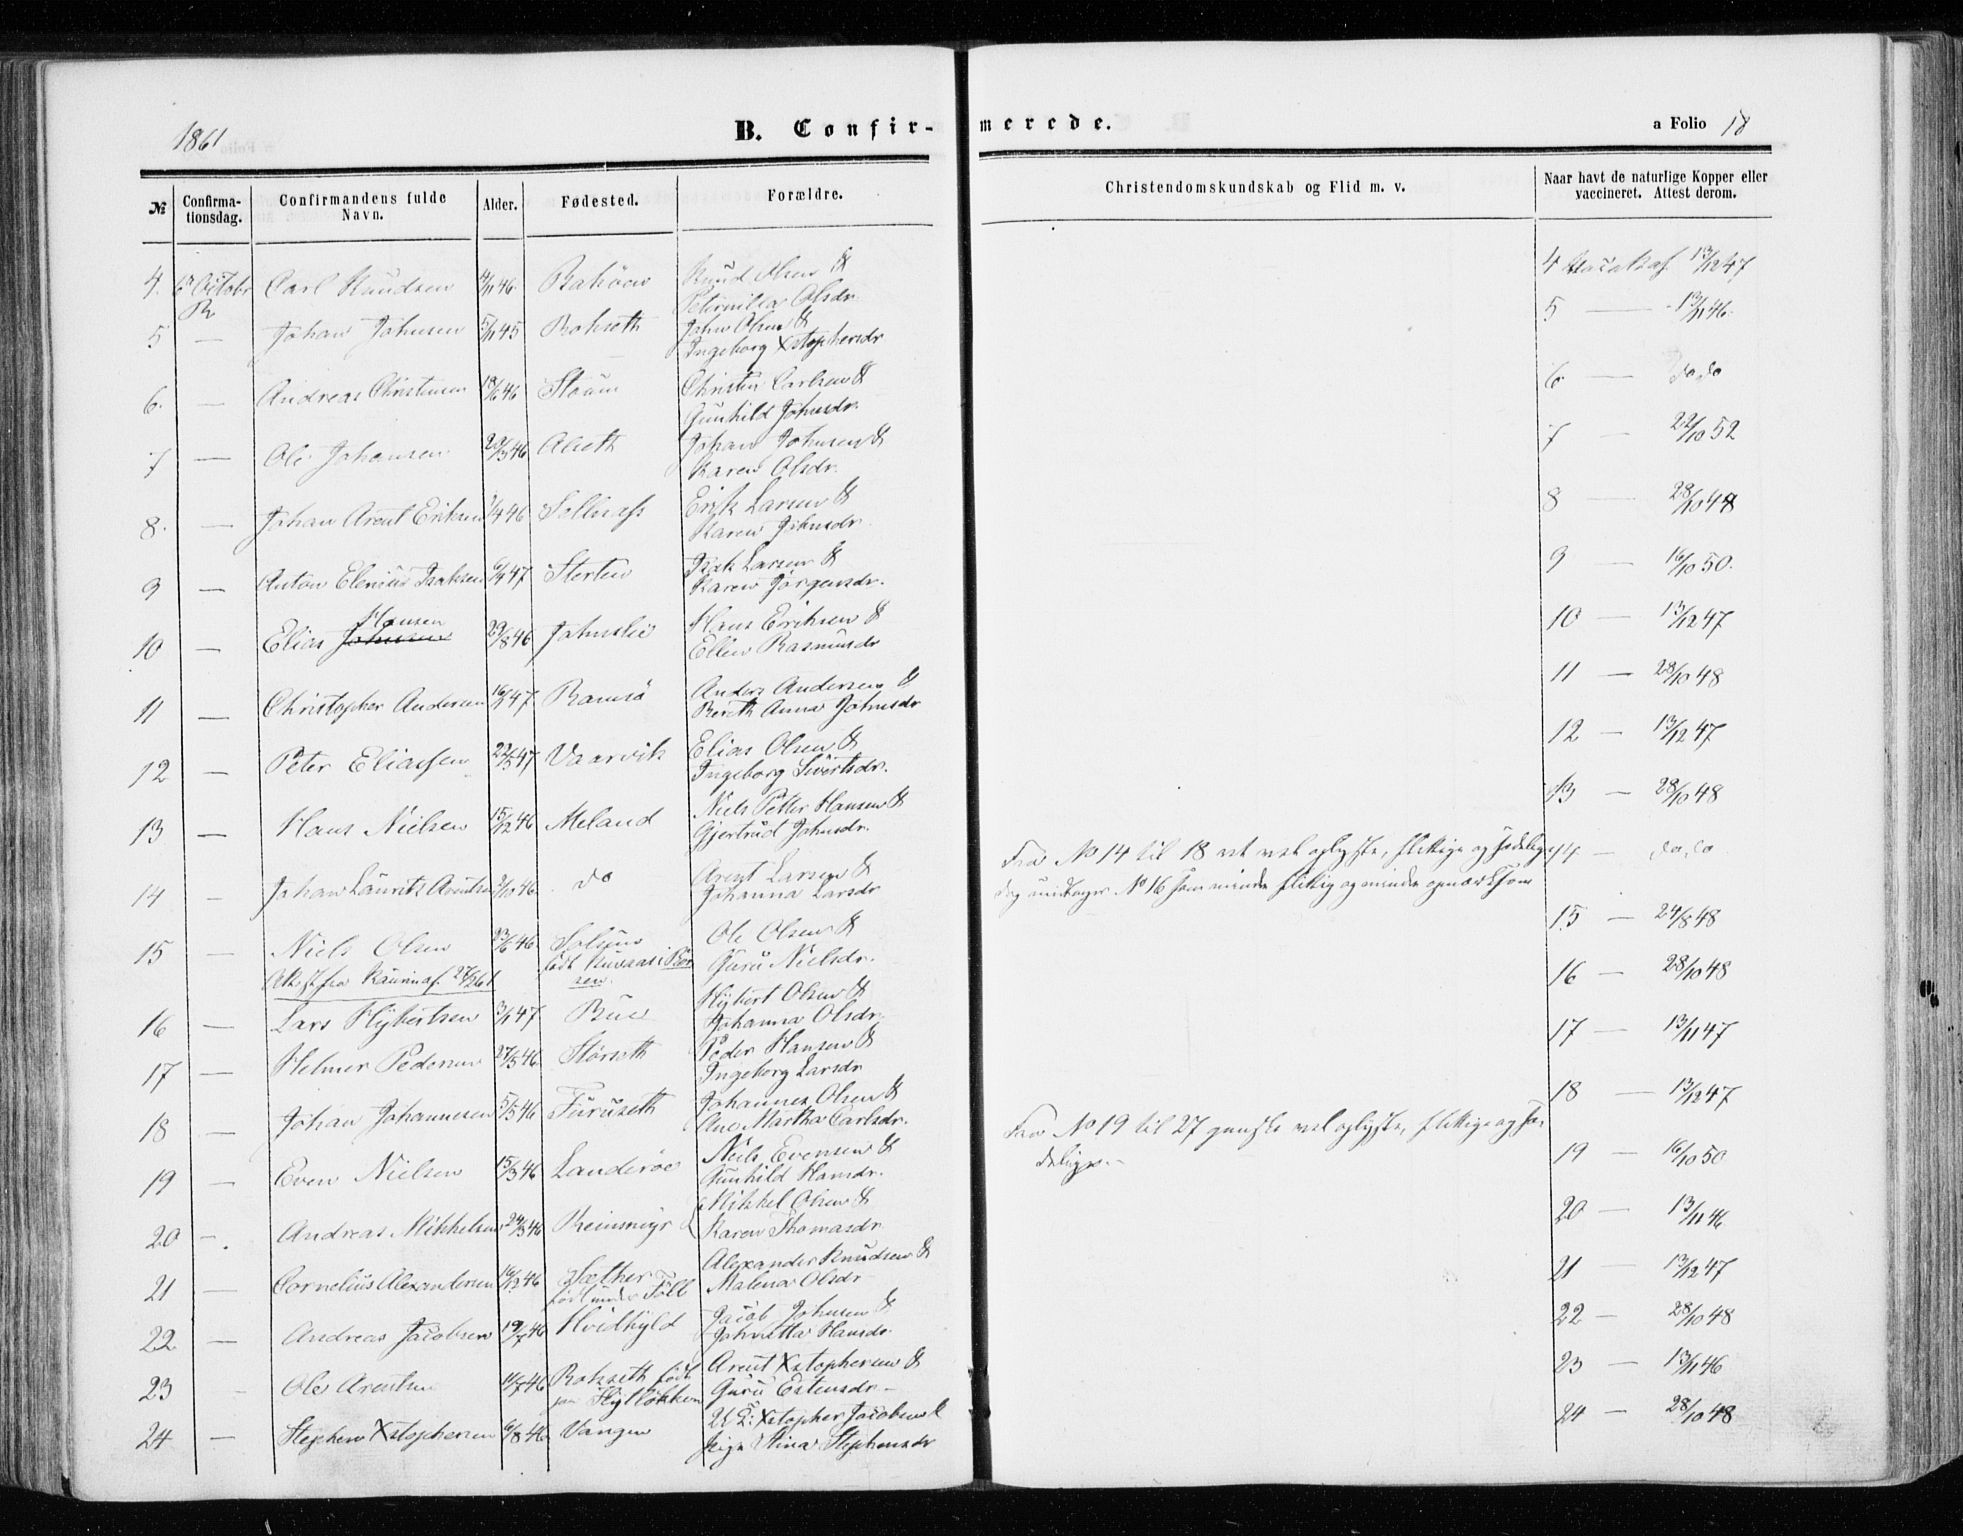 1861
B. Confir-
merede.
a Folio 18
№
Confirma-
tionsdag.
Confirmandens fulde
Navn.
Alder.
Fødested.
Forældre.
Christendomskundskab og Flid m. v.
Naar havt de naturlige Kopper eller
vaccineret. Attest derom.
4. 6 Octobr Carl Knudsen 4/11 46 Knud Olsen & 4 13/12 47
Peternilla Olsdr
5 — Johan Johnsen 5/11 45 Rokseth John Olsen & 5 — 13/11 46.
Ingeborg Xstophersdr
6. — Andreas Christensen 18/6 46 Christen Carlsen & 6 — do, do
Gunhild Johnsdr.
7 — Ole Johansen 20/3 46 Johan Johnsen & 7 — 22/10 52
Karen Olsdr.
8. — Johan Arent Eriksen 1/4 46 Sollnæss Erik Larsen & 8 — 28/10 48
Karen Johnsdr
9 — Anton Elenius Isaksen 6/4 47 Sterten Isak Larsen & 9 16/10 50.
Karen Jörgensdr.
Hansen
10 — Elias Johnsen 29/8 46 Johnslie Hans Eriksen & 10 — 13/12 47
Ellen Rasmusdr
11 — Christopher Andersen 16/1 47 Ramsö Anders Andersen & 11 — 28/10 48
Bereth Anna Johnsdr
12 — Peter Eliassen 22/3 47 Vaarvik Elias Olsen & 12 — 13/12 47
Ingeborg Sivertsdr.
13 — Hans Nielsen 15/12 46 Meland Niels Petter Hansen & 13 — 28/10 48
Gjertrud Johnsdr.
14 — Johan Lauritz Arentsen 2/10 46 do Arent Larsen & 14 — do, do
Johanna Larsdr
Fra No 14 til 18 vel oplyste, flittige og sædelige
dog undtages No 16 som mindre flittig og mindre opmærksom
15 — Niels Olsen 23/6 46 Ole Olsen & 15 — 24/8 48
Guru Nielsdr.
16 — Lars Hybertsen 3/1 47 Bue Hybert Olsen & 16 — 28/10 48
Johanna Olsdr.
17 — Helmer Pedersen 27/3 46 Störseth Peder Hansen & 17 — 13/11 47
Ingeborg Larsdr
18 — Johan Johannesen 5/5 46 Furuseth Johannes Olsen & 18 — 13/12 47
Ane Martha Carlsdr.
Fra No 19 til 27 ganske vel oplyste, flittige og sæ-
delige.—
19 — Even Nielsen 15/3 46 Landeröe Niels Evensen & 19 — 16/10 50
Gunhild Hansdr.
20 — Andreas Mikkelsen 24/3 46 Reinsmyr Mikkel Olsen & 20 — 13/11 46
Karen Thomasdr
21 — Cornelius Alexandersen 16/12 46 Sæther Alexander Knudsen & 21 — 13/12 47
Malena Olsdr
22 — Andreas Jacobsen 19/7 46 Hvidhyld Jacob Johnsen & 22 — 28/10 48
Johnetta Hansdr.
23 - Ole Arentsen 11/7 46 Rokseth født Arent Xstophersen & 23 — 13/11 46
paa Guru Estensdr —
24 — Stephen Xstophersen 6/8 46 Vangen Xstopher Jacobsen & 24 — 28/10 48
Stina Stephensdr